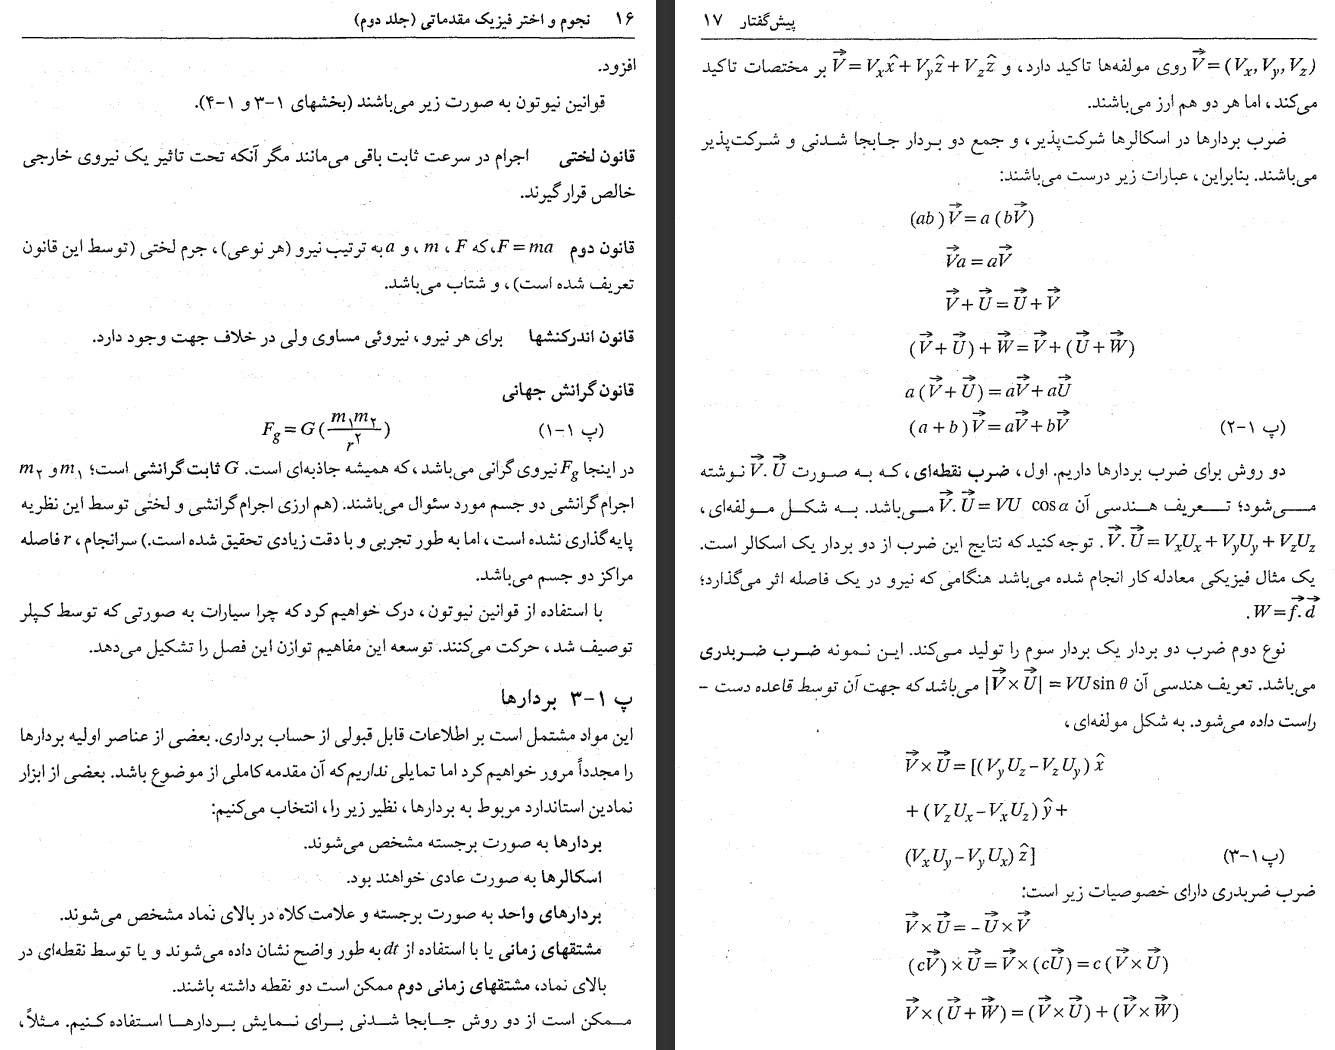 ۱۶ نجوم و اختر فیزیک مقدماتی (جلد دوم)
افزود.
قوانین نیوتون به صورت زیر می‌باشند (بخشهای ۱-۳ و ۱-۴).
قانون لختی اجرام در سرعت ثابت باقی می‌مانند مگر آنکه تحت تاثیر یک نیروی خارجی
خالص قرار گیرند.
قانون دوم F = ma، که F ، m ، و a به ترتیب نیرو (هر نوعی)، جرم لختی (توسط این قانون
تعریف شده است)، و شتاب می‌باشد.
قانون اندرکنشها برای هر نیرو، نیروئی مساوی ولی در خلاف جهت وجود دارد.
قانون گرانش جهانی
F_g = G (m_۱ m_۲ / r^۲) (پ ۱-۱)
در اینجا F_g نیروی گرانی می‌باشد، که همیشه جاذبه‌ای است. G ثابت گرانشی است؛ m_۱ و m_۲
اجرام گرانشی دو جسم مورد سئوال می‌باشند. (هم ارزی اجرام گرانشی و لختی توسط این نظریه
پایه گذاری نشده است، اما به طور تجربی و با دقت زیادی تحقیق شده است.) سرانجام، r فاصله
مراکز دو جسم می‌باشد.
با استفاده از قوانین نیوتون، درک خواهیم کرد که چرا سیارات به صورتی که توسط کپلر
توصیف شد، حرکت می‌کنند. توسعه این مفاهیم توازن این فصل را تشکیل می‌دهد.
پ ۱-۳ بردارها
این مواد مشتمل است بر اطلاعات قابل قبولی از حساب برداری. بعضی از عناصر اولیه بردارها
را مجدداً مرور خواهیم کرد اما تمایلی نداریم که آن مقدمه کاملی از موضوع باشد. بعضی از ابزار
نمادین استاندارد مربوط به بردارها، نظیر زیر را، انتخاب می‌کنیم:
بردارها به صورت برجسته مشخص می‌شوند.
اسکالرها به صورت عادی خواهند بود.
بردارهای واحد به صورت برجسته و علامت کلاه در بالای نماد مشخص می‌شوند.
مشتقهای زمانی یا با استفاده از dt به طور واضح نشان داده می‌شوند و یا توسط نقطه‌ای در
بالای نماد، مشتقهای زمانی دوم ممکن است دو نقطه داشته باشند.
ممکن است از دو روش جابجا شدنی برای نمایش بردارها استفاده کنیم. مثلاً،
پیش‌گفتار ۱۷
V⃗ = (V_x, V_y, V_z) روی مولفه‌ها تاکید دارد، و V⃗ = V_x x̂ + V_y ẑ + V_z ẑ بر مختصات تاکید
می‌کند، اما هر دو هم ارز می‌باشند.
ضرب بردارها در اسکالرها شرکت‌پذیر، و جمع دو بردار جابجا شدنی و شرکت‌پذیر
می‌باشند. بنابراین، عبارات زیر درست می‌باشند:
(ab) V⃗ = a (bV⃗)
V⃗a = aV⃗
V⃗ + U⃗ = U⃗ + V⃗
(V⃗ + U⃗) + W⃗ = V⃗ + (U⃗ + W⃗)
a (V⃗ + U⃗) = aV⃗ + aU⃗
(a + b) V⃗ = aV⃗ + bV⃗ (پ ۱-۲)
دو روش برای ضرب بردارها داریم. اول، ضرب نقطه‌ای، که به صورت V⃗. U⃗ نوشته
می‌شود؛ تعریف هندسی آن V⃗. U⃗ = VU cos α می‌باشد. به شکل مولفه‌ای،
V⃗. U⃗ = V_x U_x + V_y U_y + V_z U_z . توجه کنید که نتایج این ضرب از دو بردار یک اسکالر است.
یک مثال فیزیکی معادله کار انجام شده می‌باشد هنگامی که نیرو در یک فاصله اثر می‌گذارد؛
W = f⃗. d⃗ .
نوع دوم ضرب دو بردار یک بردار سوم را تولید می‌کند. این نمونه ضرب ضربدری
می‌باشد. تعریف هندسی آن |V⃗ × U⃗| = VU sin θ می‌باشد که جهت آن توسط قاعده دست -
راست داده می‌شود. به شکل مولفه‌ای،
V⃗ × U⃗ = [(V_y U_z – V_z U_y) x̂
+ (V_z U_x – V_x U_z) ŷ +
(V_x U_y – V_y U_x) ẑ] (پ ۱-۳)
ضرب ضربدری دارای خصوصیات زیر است:
V⃗ × U⃗ = – U⃗ × V⃗
(cV⃗) × U⃗ = V⃗ × (cU⃗) = c (V⃗ × U⃗)
V⃗ × (U⃗ + W⃗) = (V⃗ × U⃗) + (V⃗ × W⃗)